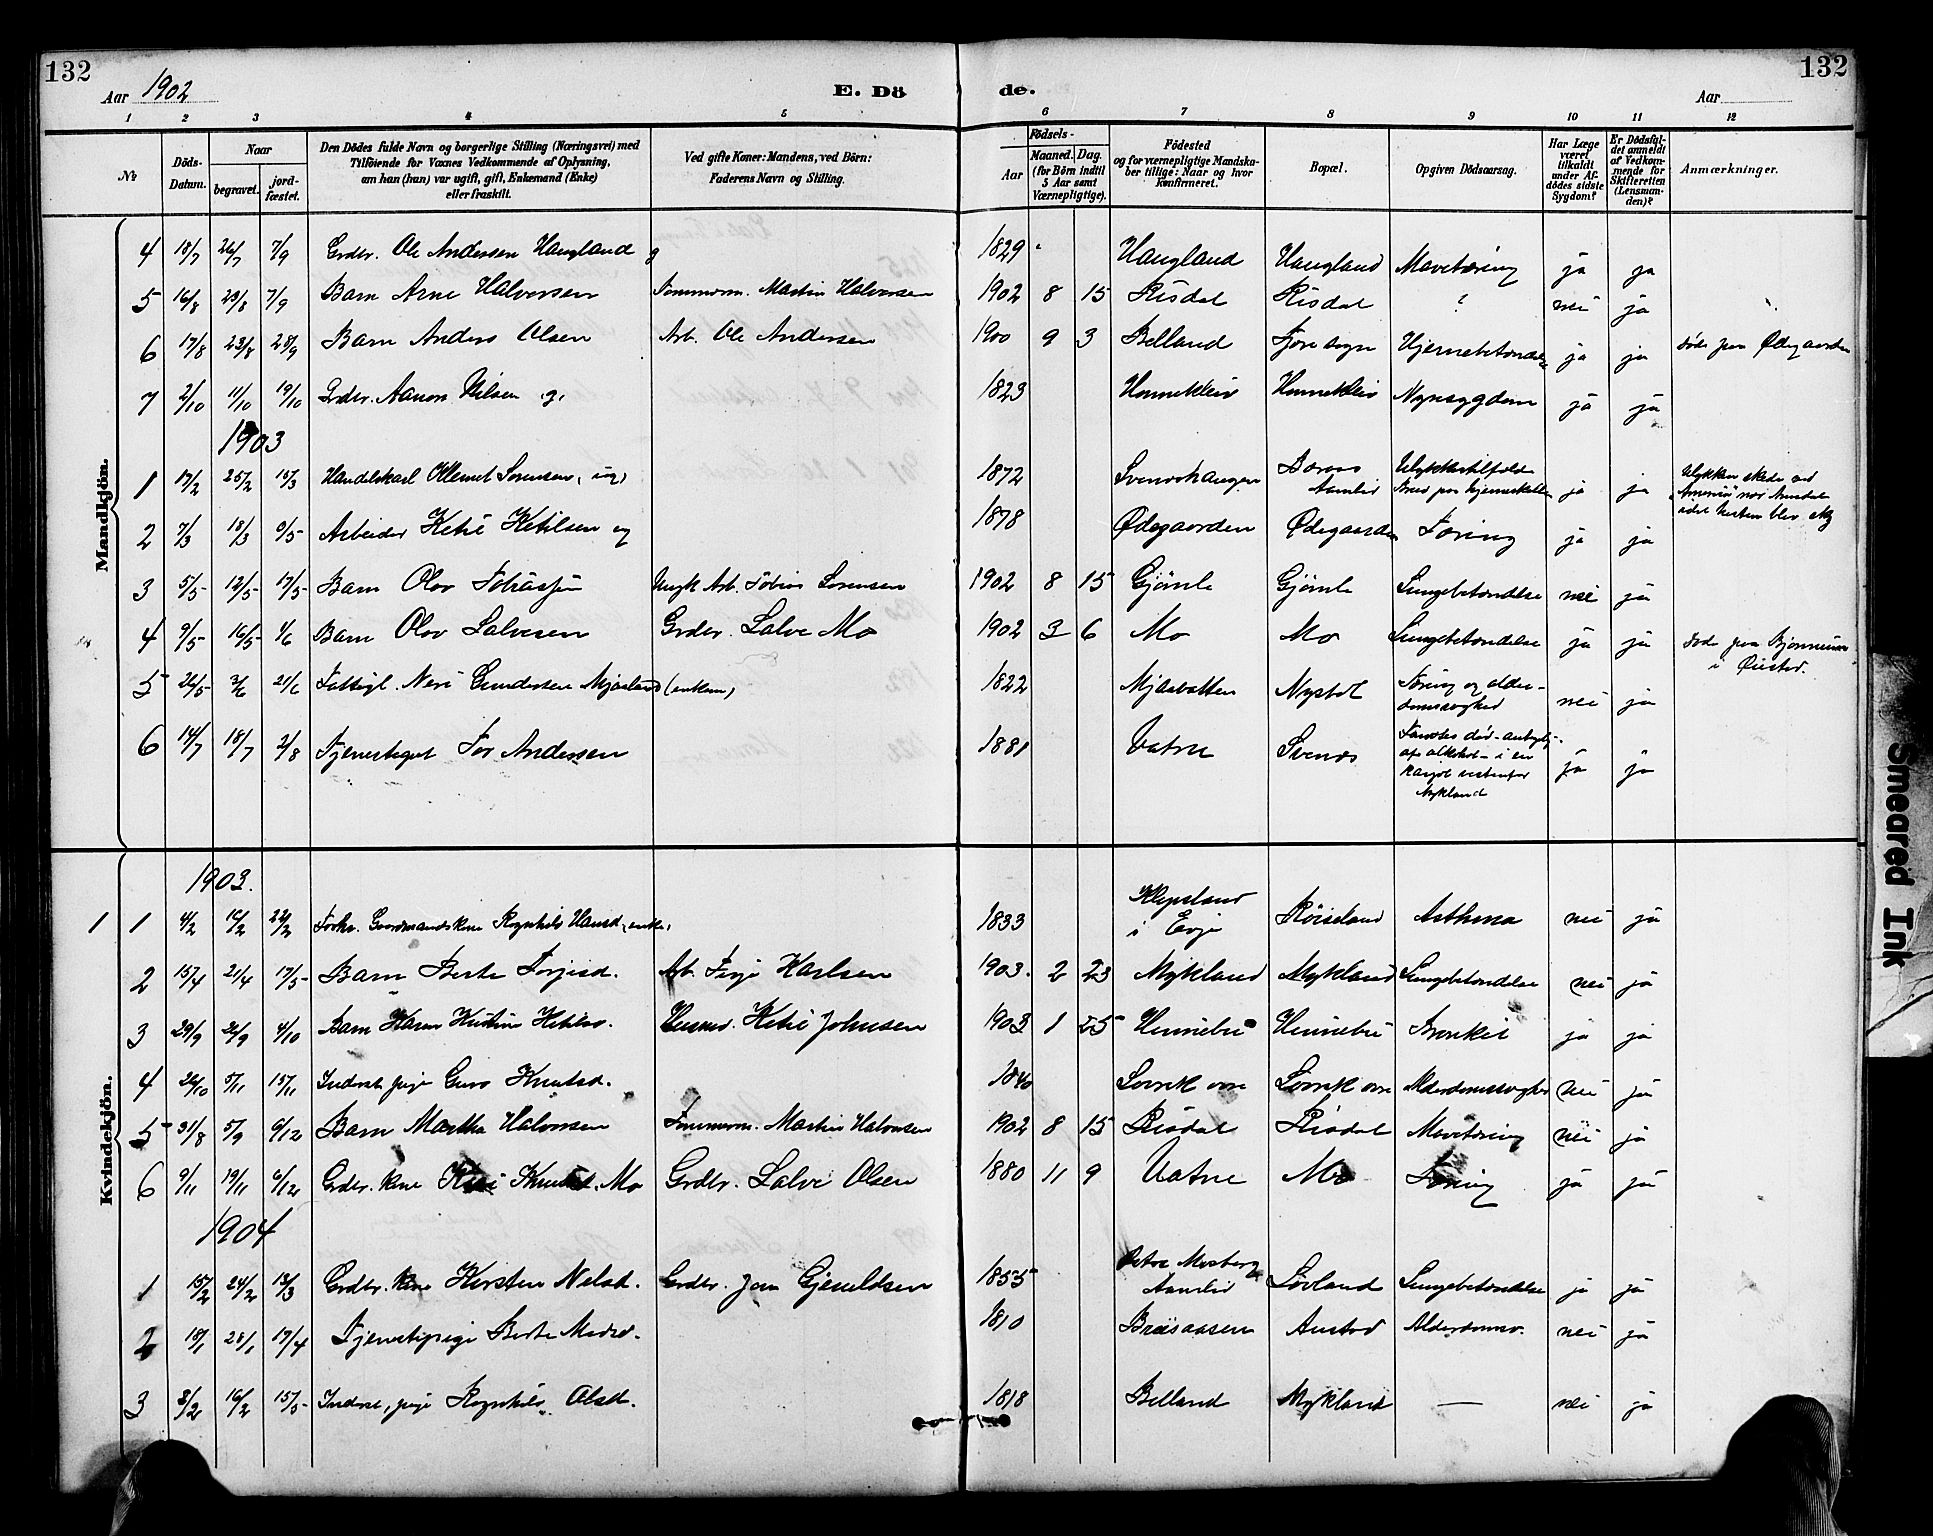 132
132
Aar 1902
E. Dö
de.
Aar
1 2 3 4 5 6 7 8 9 10 11 12
No
Döds-Datum.
Naar
begravet.
jord-fæstet.
Den Dödes fulde Navn og borgerlige Stilling (Næringsvei) med
Tilföiende for Voxnes Vedkommende af Oplysning,
om han (hun) var ugift, gift, Enkemand (Enke)
eller fraskilt.
Ved gifte Koner: Mandens, ved Börn:
Faderens Navn og Stilling.
Födsels-
Aar
Maaned. Dag.
(for Börn indtil
5 Aar samt
Værnepligtige).
Födested
og for værnepligtige Mandska-
ber tillige: Naar og hvor
konfirmeret.
Bopæl.
Opgiven Dödsaarsag.
Har Læge
været
tilkaldt
under Af-
dödes sidste
Sygdom?
Er Dödsfal-
det anmeldt
af Vedkom-
mende for
Skifteretten
(Lensman-
den)?
Anmærkninger.
Mandkjön.
4 18/7 26/7 7/9 Grdbr. Ole Andersen Haugland g 1829 Haugland Haugland Mavetæring ja ja
5 16/8 23/8 7/9 Barn Arne Halvorsen Tømmerm. Martin Halvorsen 1902 8 15 Risdal Risdal ? nei ja
6 17/8 23/8 28/9 Barn Anders Olsen Arb. Ole Andersen 1900 9 3 Belland Fjore sogn Hjernebetændelse ja ja døde paa Ødegaarden
7 2/10 11/10 19/10 Grdbr. Aanon Nilsen g. 1823 Hennekleiv Hennekleiv Nyresygdom ja ja
1903
1 17/2 25/2 15/3 Handelskarl Ollemet Sørensen, (ug) 1872 Svenoshaugen Aamlid Ulykkestilfælde ja ja
2 7/3 18/3 9/5 Arbeider Ketil Ketilsen ug 1878 Ødegaarden Ødegaarden Tæring ja ja
3 5/5 12/5 17/5 Barn Olav Tobiassen Ungk. Arb. Tobias Sørensen 1902 8 15 Gjömle Gjömle Lungebetændelse nei ja
4 9/5 16/5 1/6 Barn Olav Salvesen Grdbr. Salve Mo 1902 3 6 Mo Mo Lungebetændelse ja ja døde paa
i Øiestad.
5 26/5 3/6 21/6 Fattigl. Neri Gundersen Mjaaland (enkem) 1822 Mjaavatten Nystøl Tæring og alder-
domssvaghed nei ja
6 14/7 18/7 2/8 Tjenestegut Tor Andersen 1881 Vatne Svenos
af alkohol - i en
Mykland ja ja
Kvindekjön.
1903.
1 1 4/2 10/2 22/2 Forhv. Gaardmandskone Ragnhild Hansd., enke, 1833 Klepsland
i Evje Röiseland Asthma nei ja
2 15/4 21/4 17/5 Barn Berte Terjesd. Arb. Terje Karlsen 1903. 2 23 Mykland Mykland Lungebetændelse nei ja
3 29/9 4/10 Barn Karen Kristine Ketilsd. Husmd. Ketil Johnsen 1903 1 25 Hinnebu Hinnebu Bronkit ja ja
4 26/10 5/11 15/11 Inderst, pige Guro Knutsd. 1840 Alderdomssvaghed nei ja
5 31/8 5/9 6/12 Barn Martha Halvorsen Tømmerm. Martin Halvorsen 1902 8 15 Risdal Risdal Mavetæring nei ja
6 9/11 19/11 6/12 Grdbr. kone Knutsd. Mo Grdbr. Salve Olsen 1880 11 9 Vatne Mo Tæring ja ja
1904
1 15/2 24/2 13/3 Grdbr. kone Kirsten Nelsd. Grdbr. Jon Gjeruldsen 1855 Aamlid Lövland Lungebetændelse ja ja
2 18/1 28/1 17/4 Tjenestepige Berte Madsd. 1810 Austad Alderdomssv. nei ja
3 8/2 16/2 15/5 Inderst, pige Ragnhild Olsd. 1818 Belland Mykland — nei ja
Smeared Ink